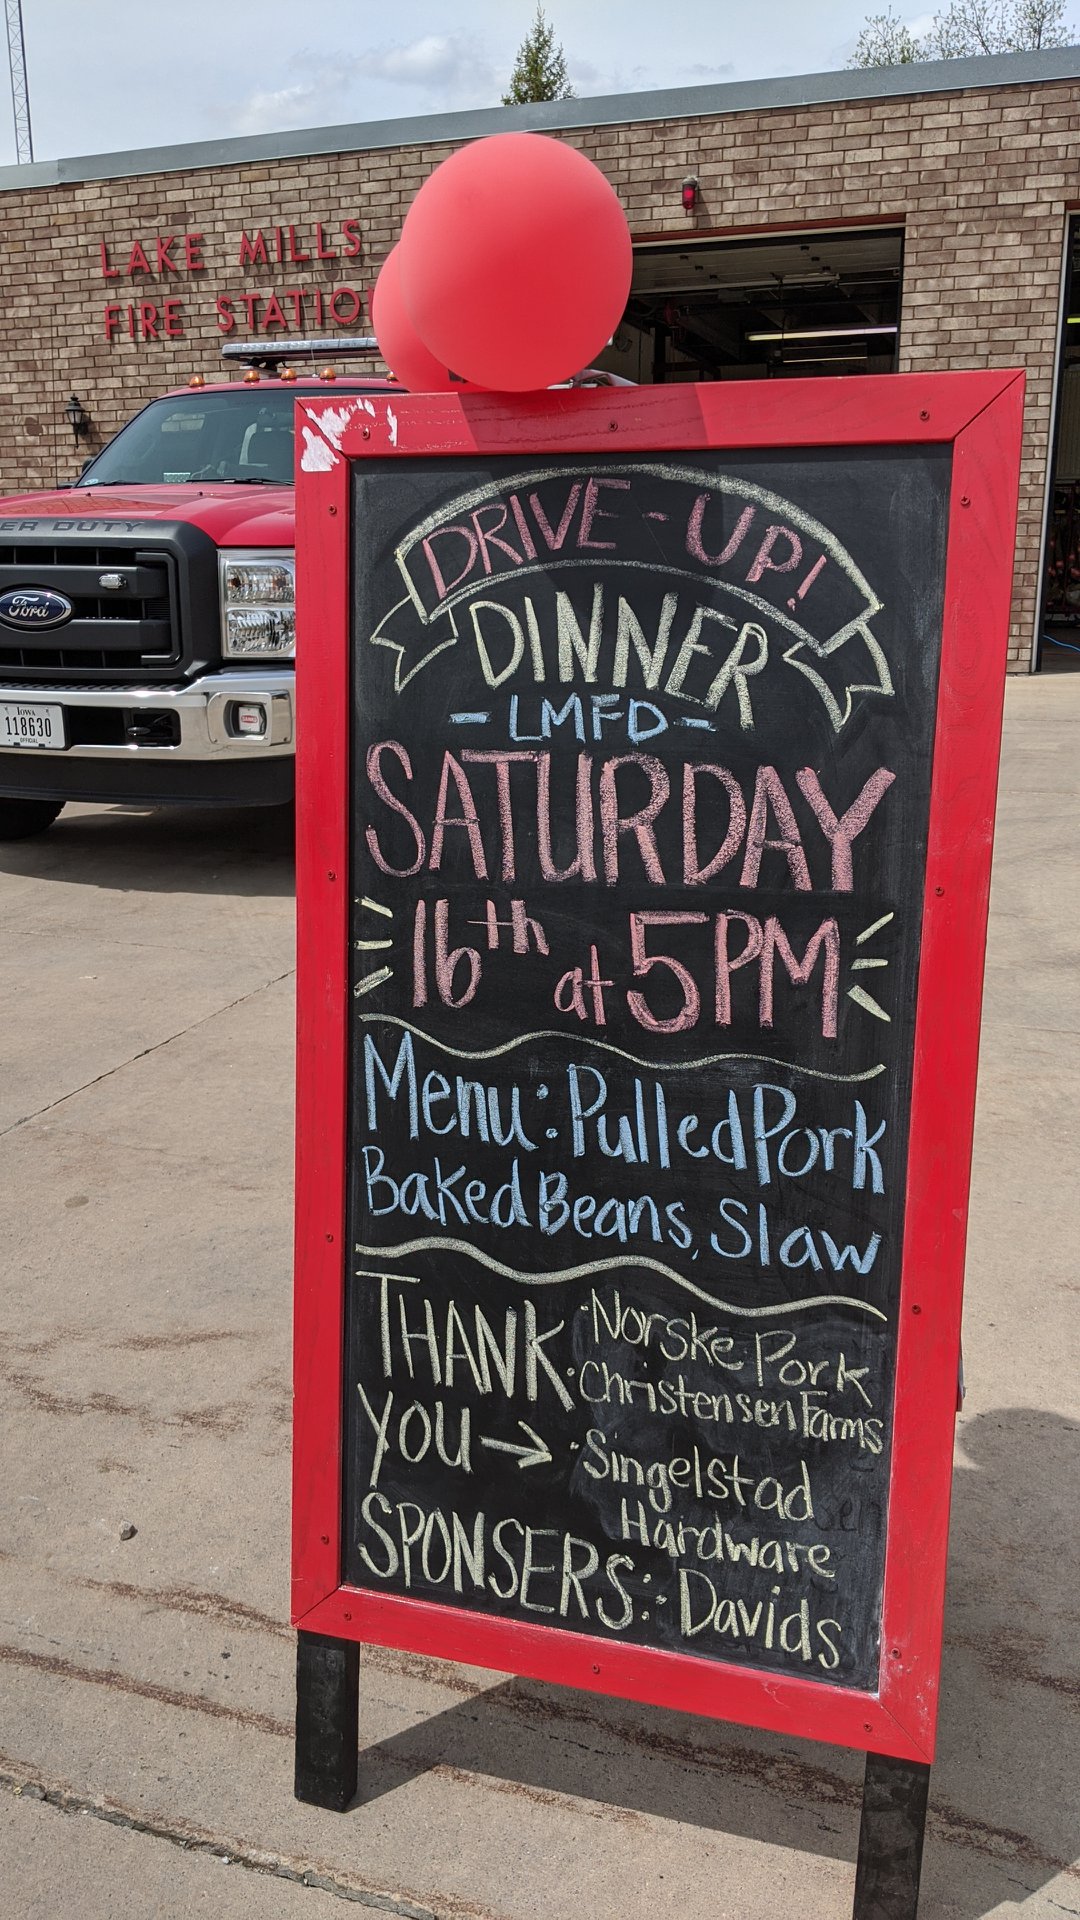 LAKE MILLS
FIRE STATIO
ER DUTY
Ford
IOWA
118630
OFFICIAL
DRIVE-UP!
DINNER
- LMFD -
SATURDAY
16th at 5PM
Menu: Pulled Pork
Baked Beans, Slaw
THANK
YOU →
SPONSERS:
· Norske Pork
· Christensen Farms
· Singelstad
Hardware
· Davids